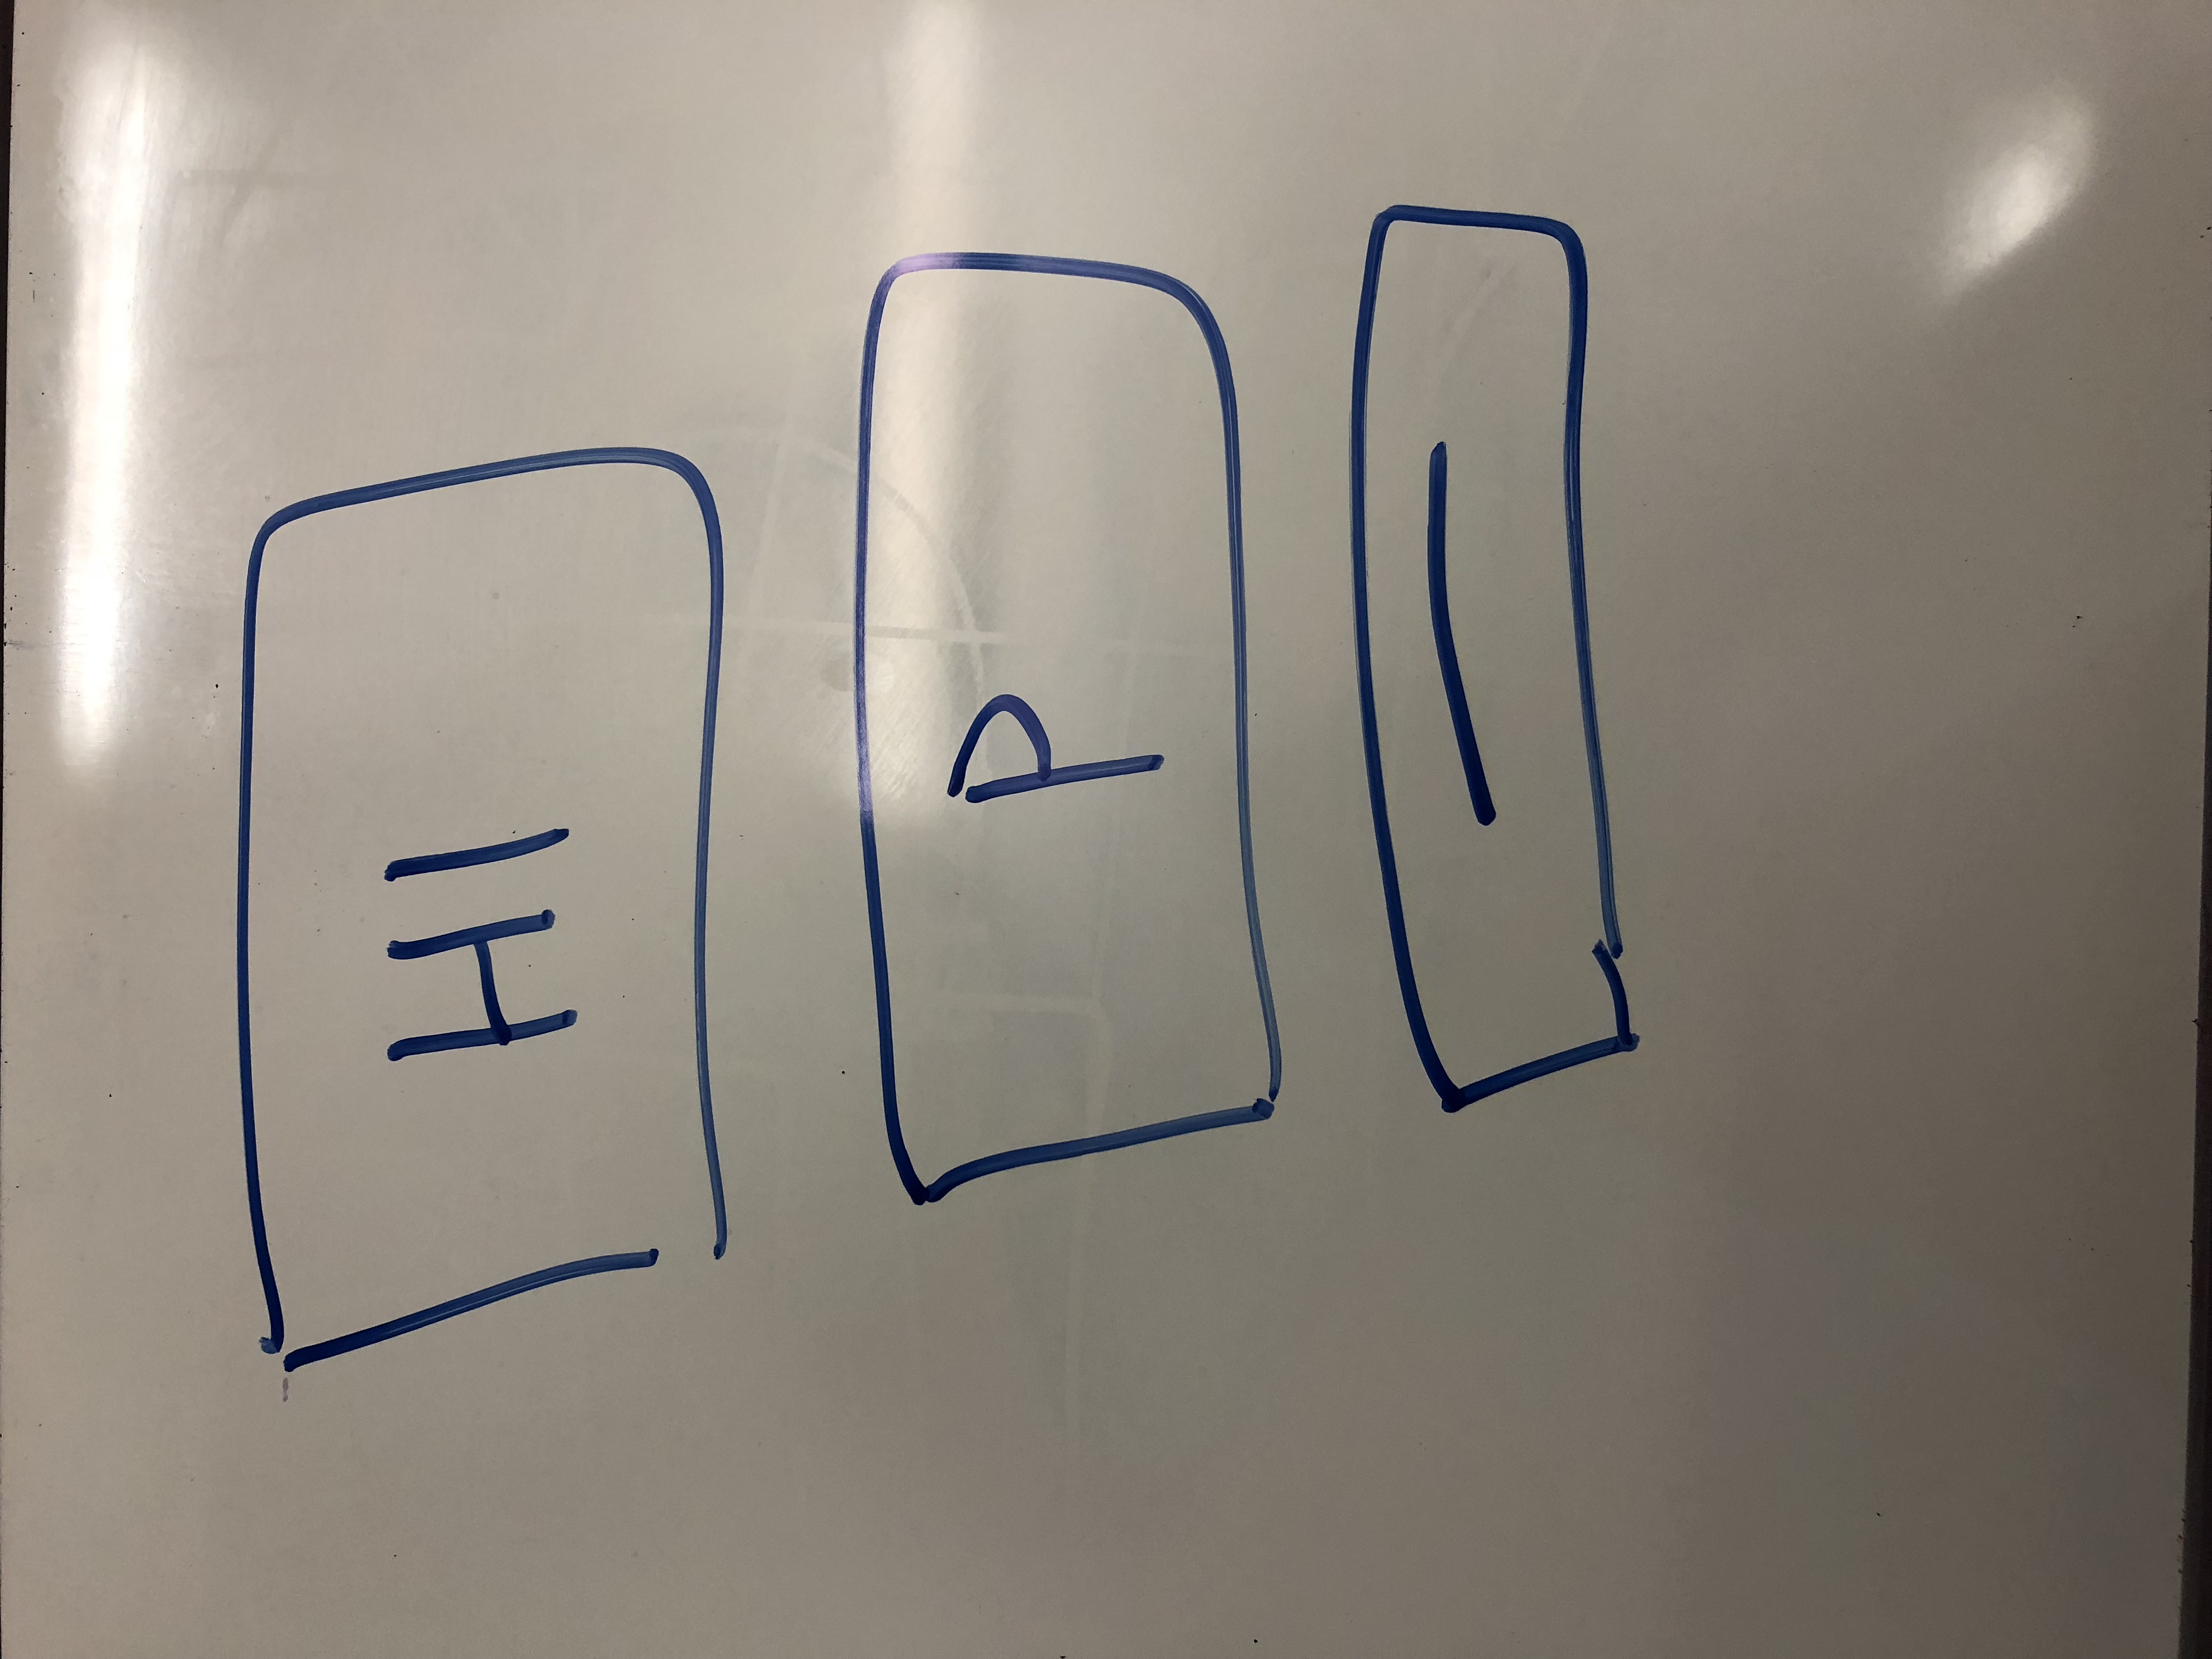 HI
P